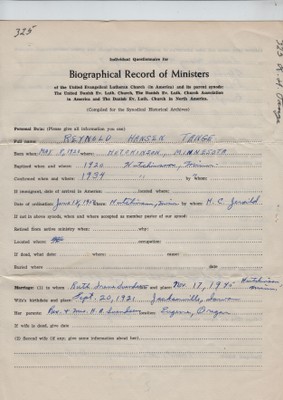 325
Individual Questionnaire for
Biographical Record of Ministers
of the United Evangelical Lutheran Church (in America) and its parent synods:
The United Danish Ev. Luth. Church, The Danish Ev. Luth. Church Association
in America and The Danish Ev. Luth. Church in North America.
(Compiled for the Synodical Historical Archives)
Personal Data: (Please give all information you can)
Full name: REYNOLD HANSEN TANGE
Born when: MAY 8, 1920 where: HUTCHINSON, MINNESOTA
Baptized when and where: 1920 Hutchinson, Minn.
Confirmed when and where: 1934 by whom:
If immigrant, date of arrival in America: located where:
Date of ordination: June 18, where: Hutchinson, Minn by whom: N. C.
If not in above synods, when and where accepted as member pastor of our synod:
Retired from active ministry when: why:
Located where: occupation:
If dead, what date: where: reason:
Buried where date
Marriage: (1) to whom: Ruth Svendsen and place: Nov. 17, 1945 Hutchinson Minn
Wife's birthdate and place: Sept. 20, 1921
Her parents: Rev. & Mrs. H. R. Svendsen location: Eugene, Oregon
If wife is dead, give date
(2) Second wife (if any, give same information about her).